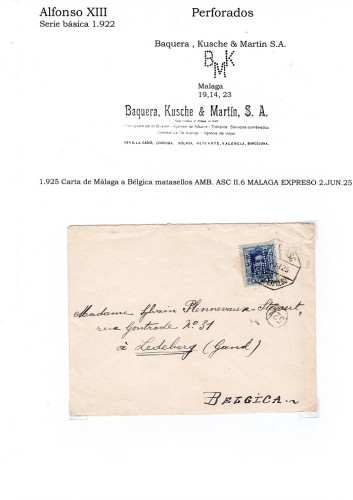 Alfonso XIII
Perforados
Serie básica 1.922
Baquera , Kusche & Martín S.A.
B K
M
Malaga
19,14, 23
Baquera, Kusche & Martín, S. A.
SEVILLA, CADIZ, CORDOBA, MALAGA, ALICANTE, VALENCIA, BARCELONA.
1.925 Carta de Málaga a Bélgica matasellos AMB. ASC II.6 MALAGA EXPRESO 2.JUN.25
Madame Sylvain Plennevaux-
rue Gontrode Nº 31
à Ledeberg (Gand)
BELGICA